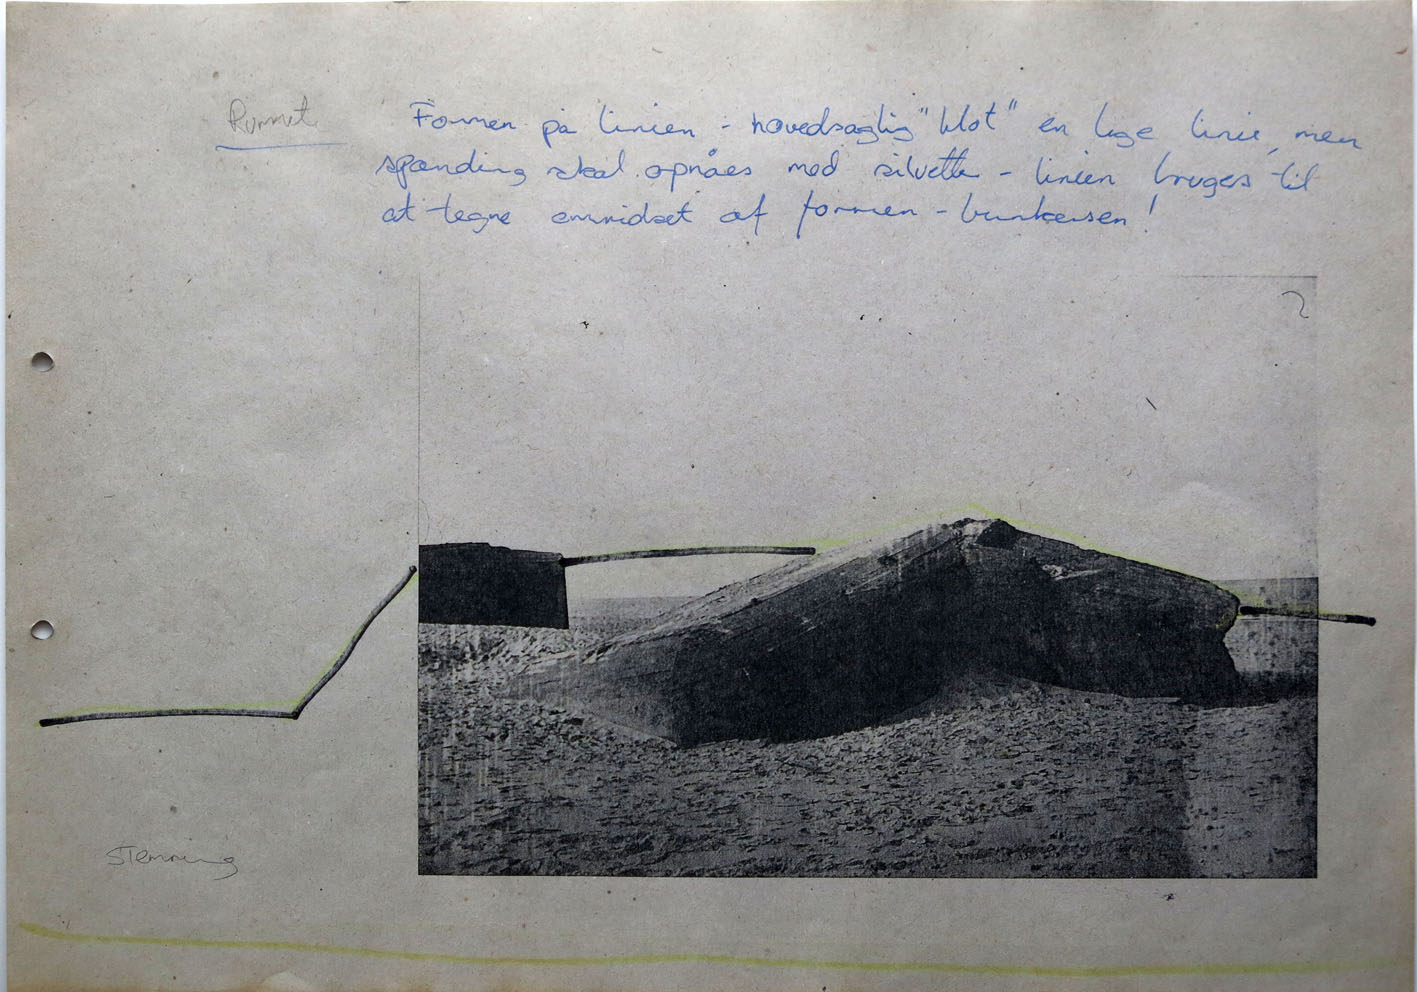 Rummet
Formen på linien - hovedsaglig "blot" en lige linie, men
spænding skal opnåes med siluette - linien bruges til
at tegne omridset af formen - bunkersen!
2
Stemning